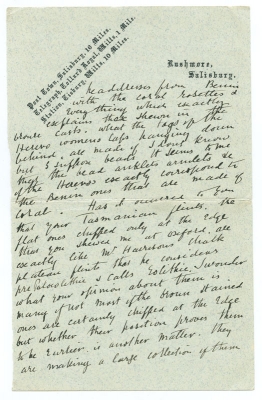 Post Town, Salisbury, 10 Miles.
Telegraph, Tollard Royal, Wilts, 1 Mile.
Station, Tisbury, Wilts, 10 Miles.
Rushmore,
Salisbury.
headdresses from Benin
with the coral rosettes &
everything which exactly
explains that shown in the
bronze casts. What the tags of the
Herero womens Caps hanging down
behind are made of I dont know
but I suppose beads. It seems to me
that the bead anklets armlets &c
of the Hereros exactly correspond to
the Benin ones that are made of
Coral. Has it occurred to you
that your Tasmanian flints, the
flat ones chipped only at the Edge
that you shewed me at Oxford, are
exactly like Mr Harrisons Chalk
plateau flints that he considers
pre Paleolithic & calls Eolithic. I wonder
what your opinion about them is
many if not most of the brown stained
ones are certainly chipped at the Edge
but whether their position proves them
to be Earlier is another matter. They
are making a large collection of them